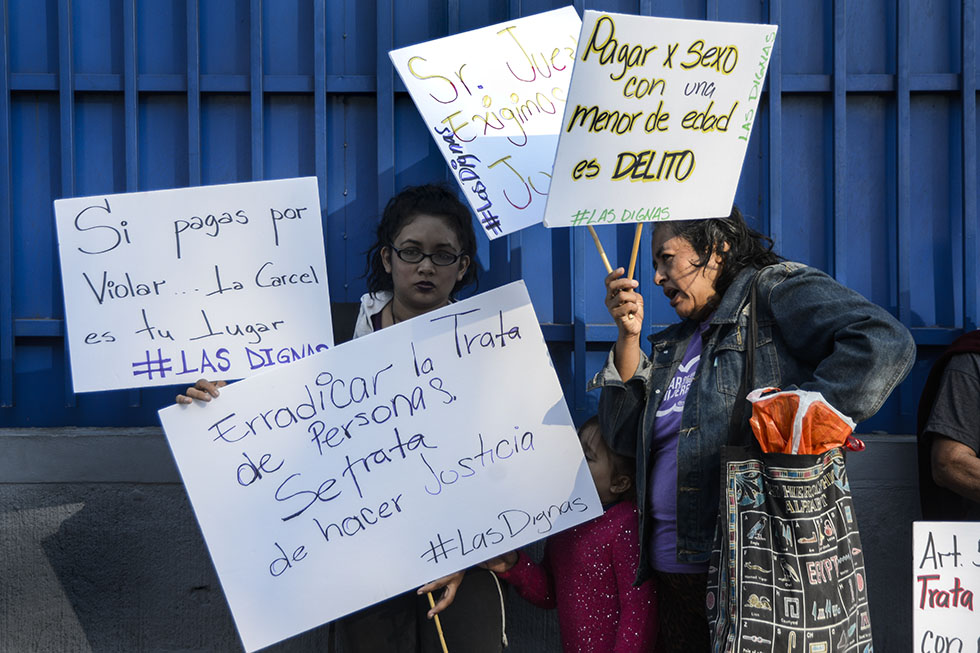 Si pagas por
Violar... La Carcel
es tu Lugar
#LAS DIGNAS
Sr. Juez
Exigimos
Ju
#Las Dignas
Pagar x Sexo
con una
menor de edad
es DELITO
#LAS DIGNAS
LAS DIGNAS
Erradicar la Trata
de Personas.
Se trata
de hacer Justicia
#LasDignas
HIEROGLYPHIC
ALPHABET
EGYPT
Art.
Trata
con